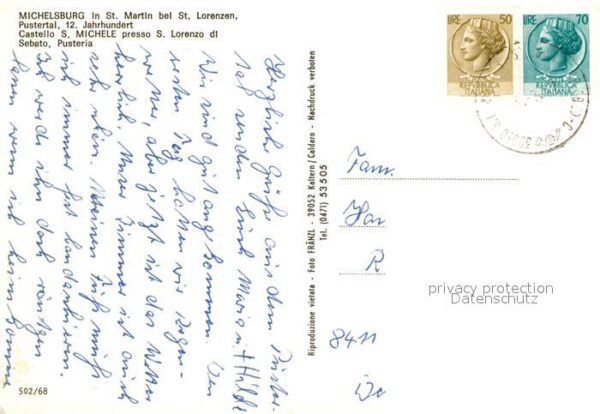 MICHELSBURG in St. Martin bei St. Lorenzen,
Pustertal, 12. Jahrhundert
Castello S. MICHELE presso S. Lorenzo di
Sebato, Pusteria
Herzliche Grüße aus dem Puster-
tal senden Euch Maria u. Hilde
Wir sind gut angekommen. Den
ersten Tag hatten wir Regen-
wetter, aber jetzt ist das Wetter
herrlich. Unser Zimmer ist auch
sehr schön. Meinen Fuß muß
ich immer fest bandagieren.
Ich werde ihn doch röntgen
lassen wenn ich heim komme
502/68
Riproduzione vietata - Foto FRÄNZL - 39052 Kaltern/Caldaro - Nachdruck verboten
Tel. (0471) 53505
LIRE 50
REPVBBLICA
ITALIANA
LIRE 70
REPVBBLICA
ITALIANA
Fam.
R
8411
privacy protection
Datenschutz